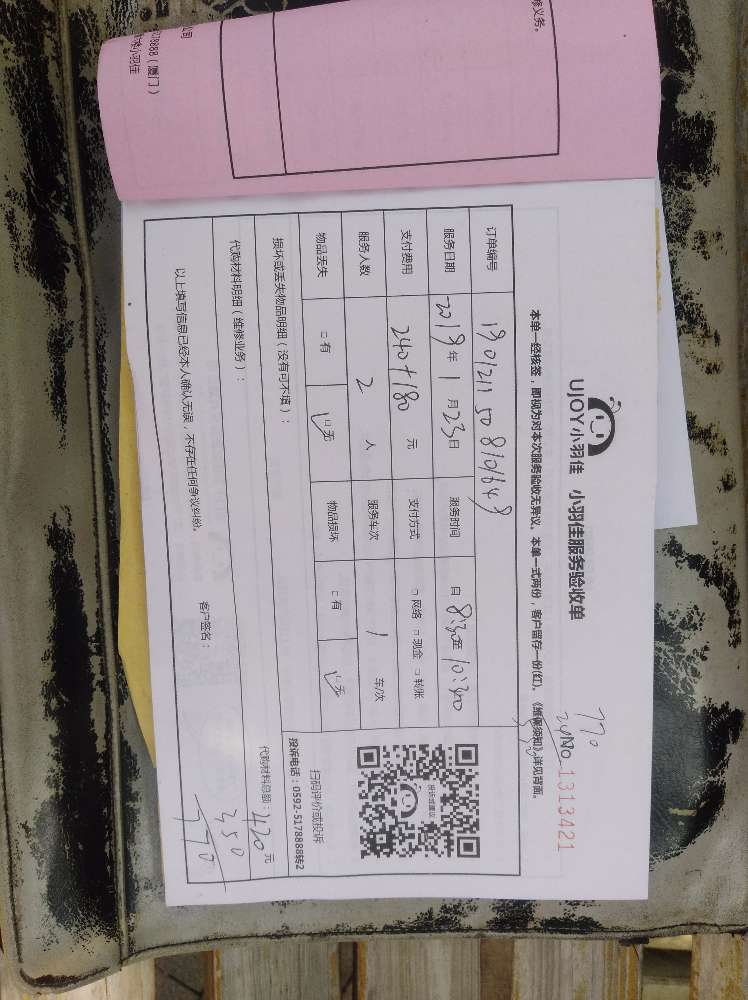 修义务。
公司
178888（厦门）
小羽佳
UJOY小羽佳 小羽佳服务验收单
本单一经核签，即视为对本次服务验收无异议。本单一式两份，客户留存一份(红)。《维保须知》详见背面。
770
No 1313421
订单编号
服务日期 2019年 1 月 23 日 服务时间 日 8:30 至 10:30
支付费用 240+180 元 支付方式 □网络 □现金 □转账
服务人数 2 人 服务车次 1 车/次
物品丢失 □有 □无 物品损坏 □有 □无
损坏或丢失物品明细（没有可不填）：
扫码评价或投诉
投诉电话：0592-5178888转2
代购材料明细（维修业务）：
代购材料总额：420 元
350
770
以上填写信息已经本人确认无误，不存在任何争议纠纷。
客户签名：